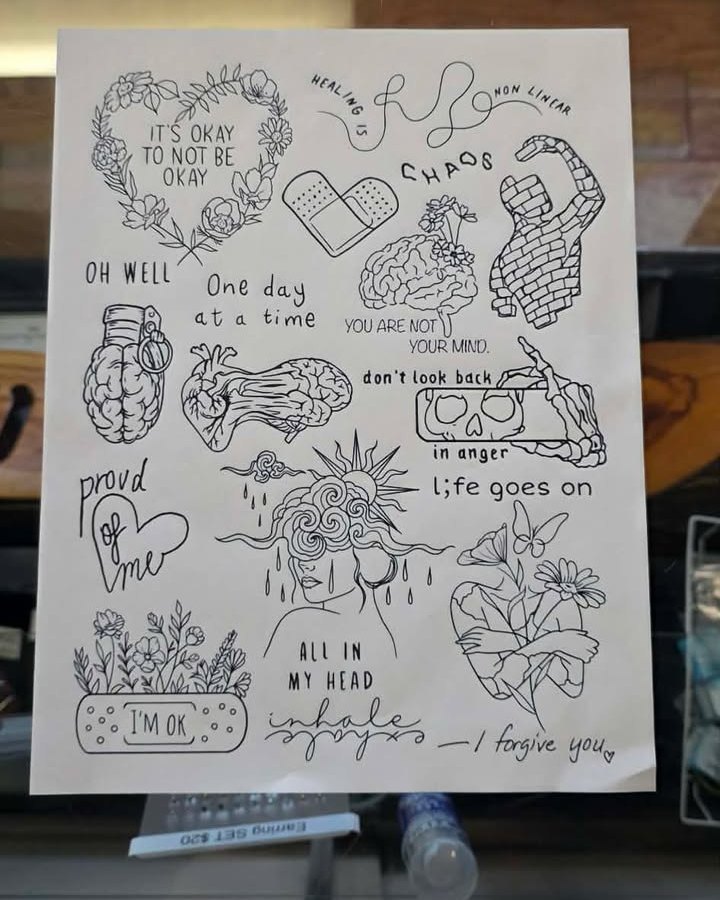 HEALING IS
NON LINEAR
IT'S OKAY
TO NOT BE
OKAY
CHAOS
OH WELL
One day
at a time
YOU ARE NOT
YOUR MIND.
don't look back
in anger
l;fe goes on
proud
of
me
ALL IN
MY HEAD
I'M OK
inhale
exhale
I forgive you
Earring SET $20